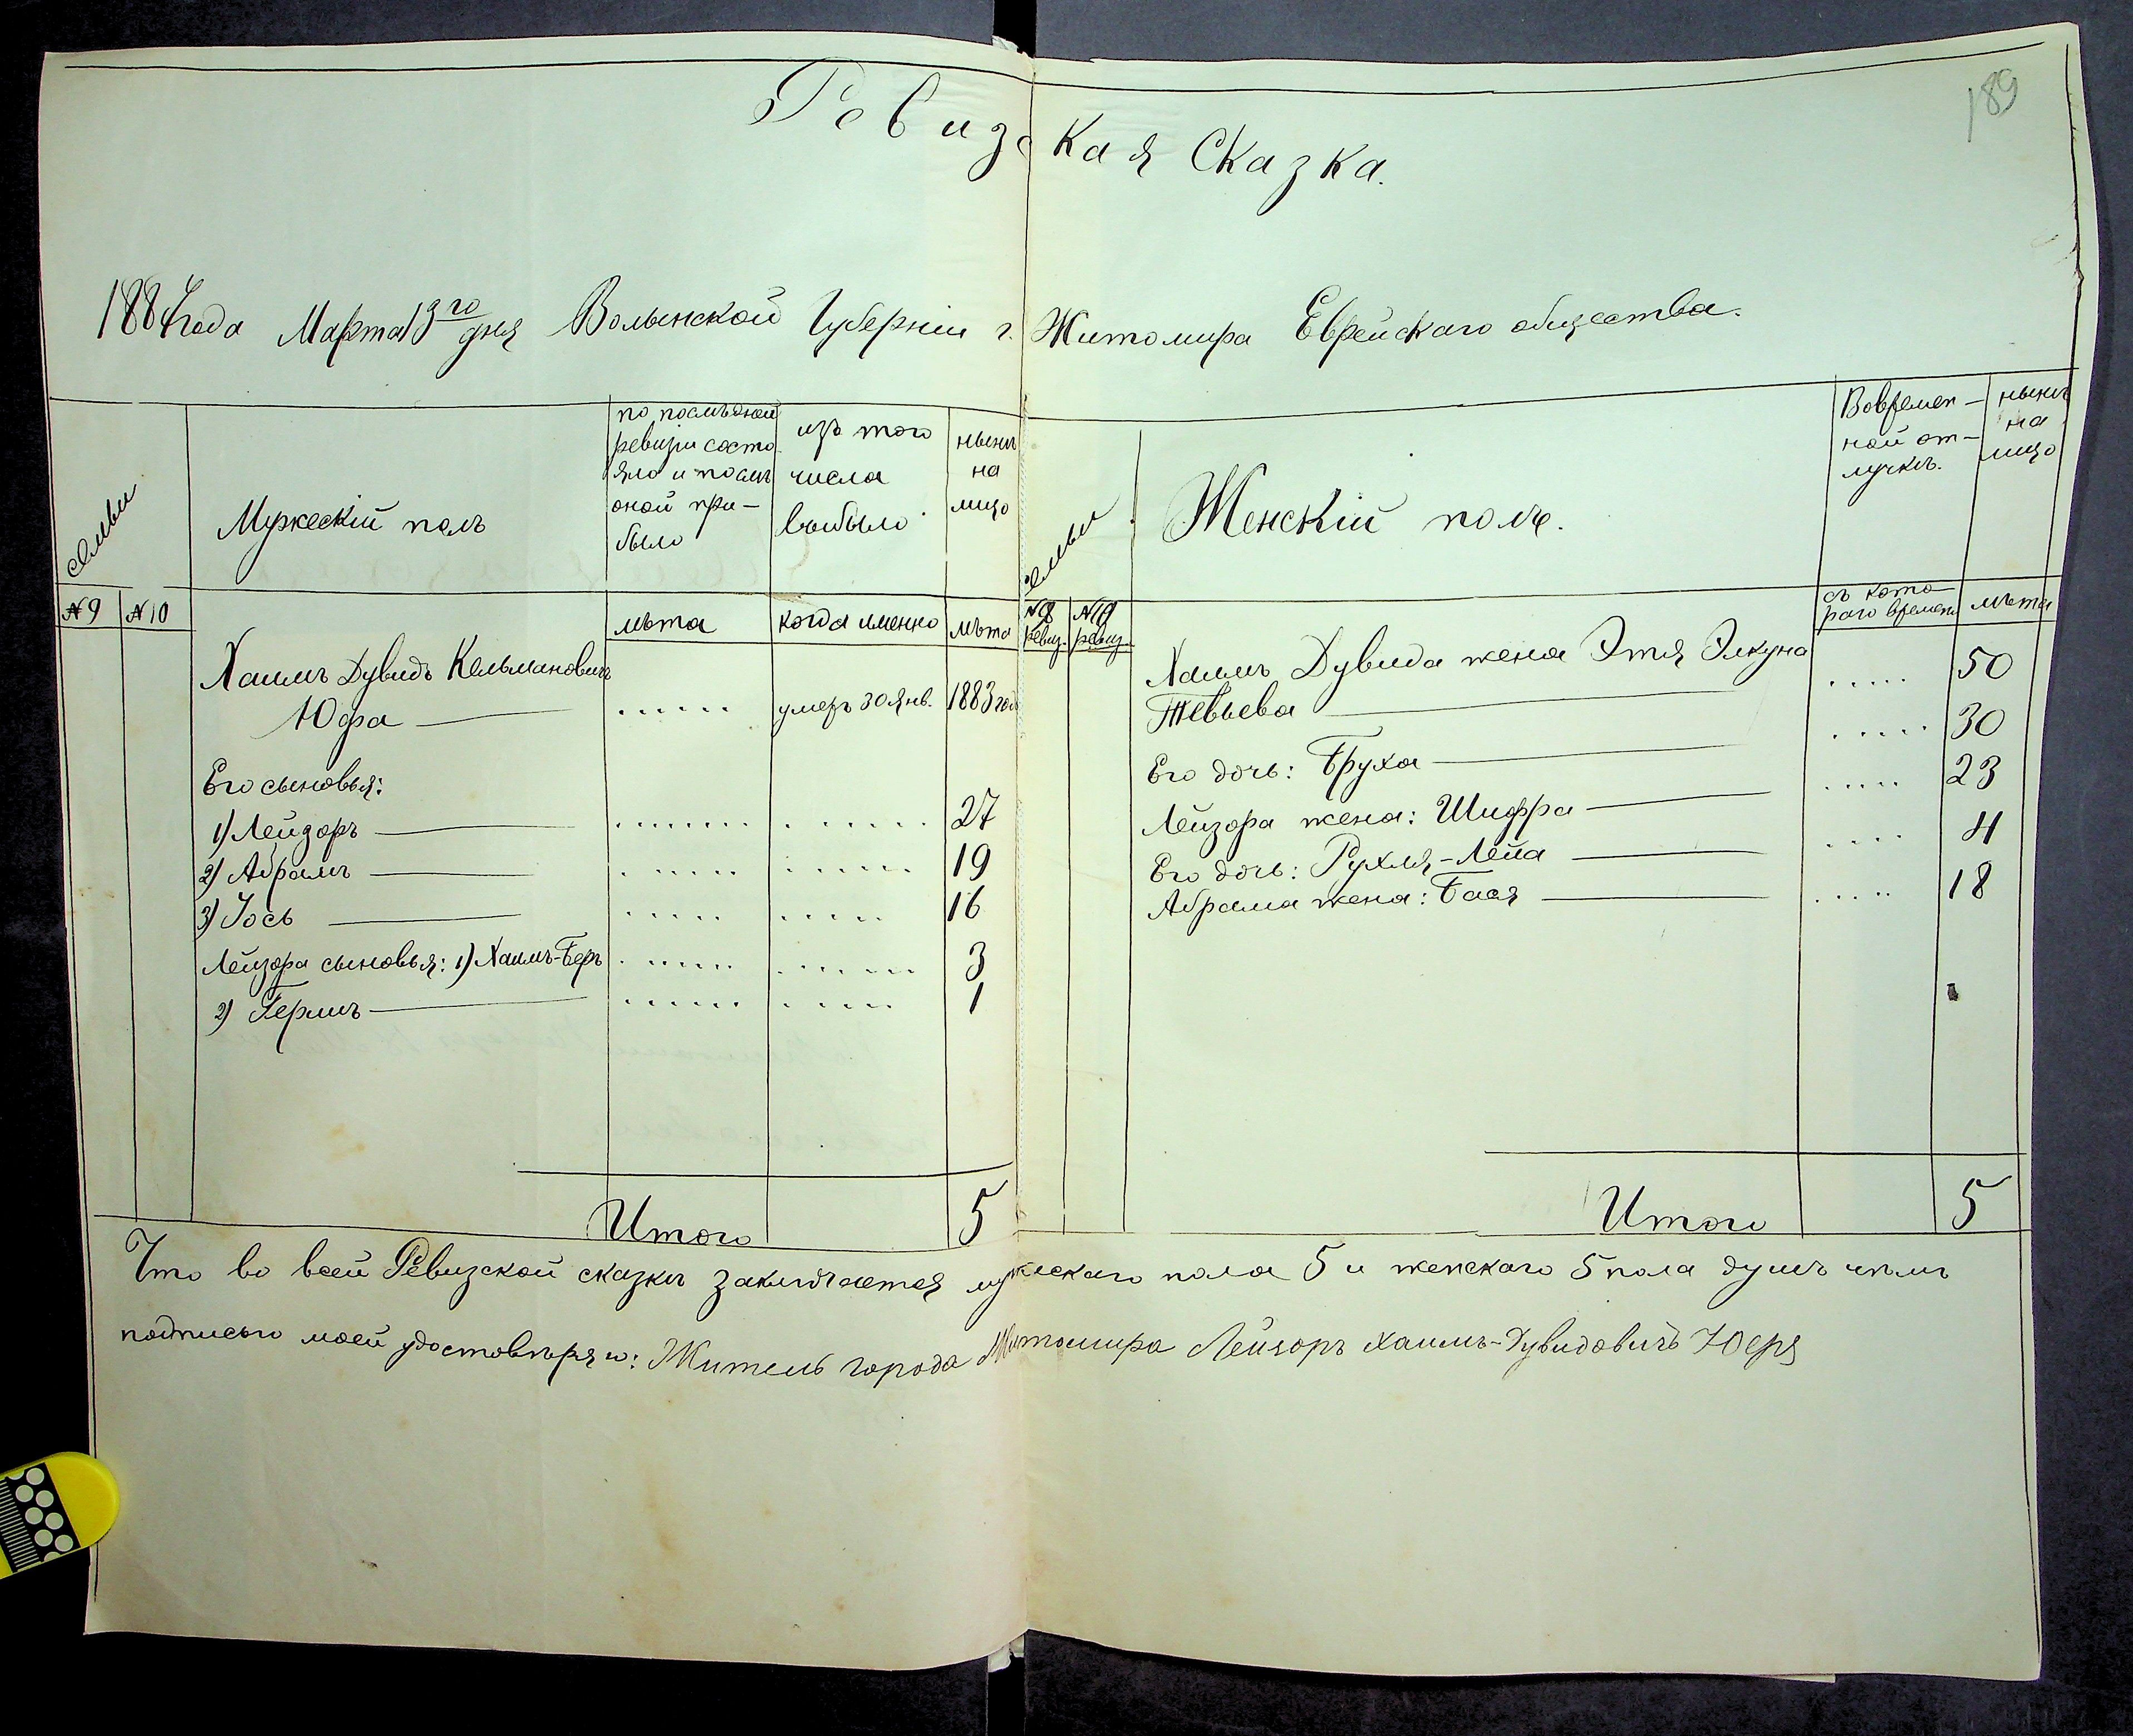 189
Ревизская Сказка.
1884 года Марта 13го дня Волынской Губерніи г. Житомира Еврейскаго общества.
семьи
Мужескій полъ
по послѣдней
ревизіи состо
яло и послѣ
оной при-
было
изъ того
числа
выбыло
нынѣ
на
лицо
№ 9 № 10
лѣта
когда именно
лѣта
Хаимъ Дувидъ Кельмановичъ
Юфа ...... умеръ 30 Янв. 1883 год
Его сыновья:
1) Лейзоръ ....... ...... 27
2) Абрамъ ...... ...... 19
3) Іось ..... ..... 16
Лейзора сыновья: 1) Хаимъ-Беръ ...... ...... 3
2) Гершъ ...... ..... 1
Итого 5
семьи
Женскій полъ.
Вовремен-
ной от-
лучкѣ.
нынѣ
на
лицо
№ 9 ревиз.
№ 10 ревиз.
съ кото-
раго времени
лѣта
Хаимъ Дувида жена Этя Элкуна
Тевьева ..... 50
Его дочь: Бруха ..... 30
Лейзора жена: Шифра ..... 23
Его дочь: Рухля-Лейа .... 4
Абрама жена: Бася ..... 18
Итого 5
Что во всей Ревизской сказки заключается мужескаго пола 5 и женскаго 5 пола душъ чѣмъ
подписью моей удостовѣряю: Житель города Житомира Лейзоръ Хаимъ-Дувидовичъ Юфа